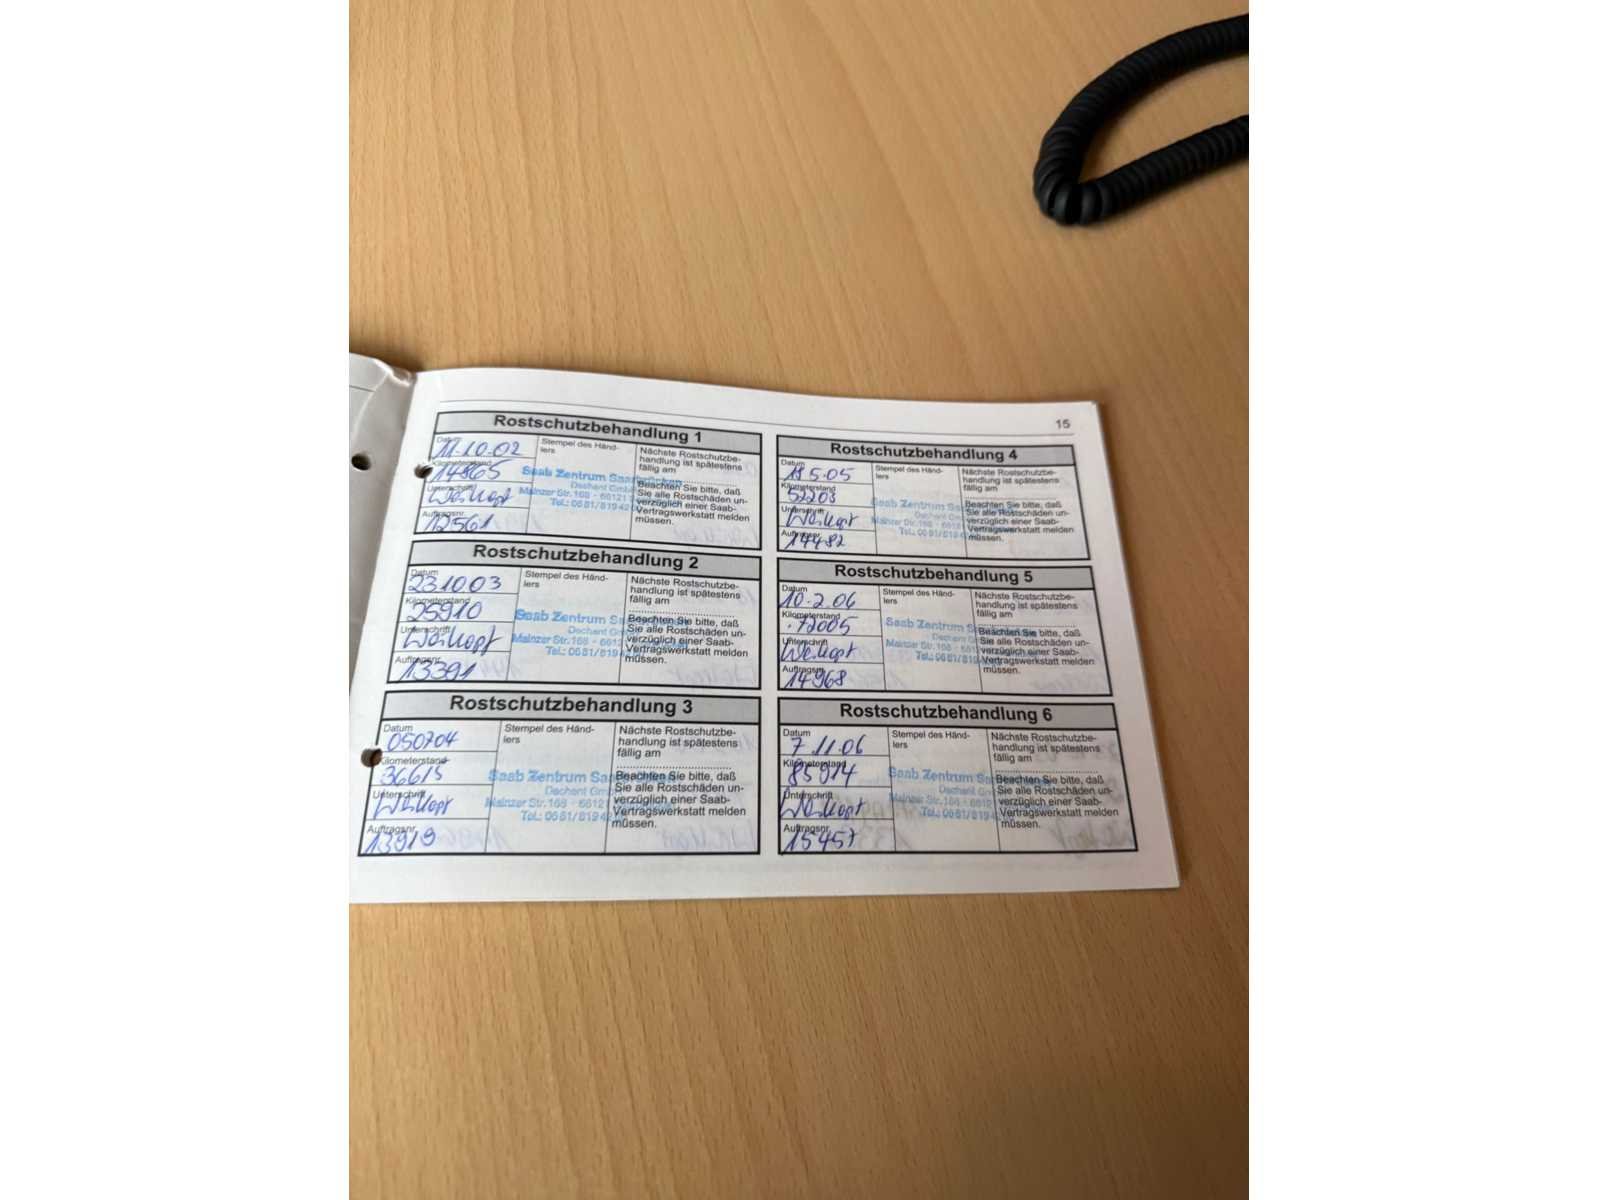 15
Rostschutzbehandlung 1
Datum
11.10.02
Kilometerstand
14865
Unterschrift
Auftragsnr.
12561
Stempel des Händ-
lers
Saab Zentrum Saarbrücken
Dechent GmbH
Mainzer Str.168 - 66121
Tel.: 0681/819
Nächste Rostschutzbe-
handlung ist spätestens
fällig am
Beachten Sie bitte, daß
Sie alle Rostschäden un-
verzüglich einer Saab-
Vertragswerkstatt melden
müssen.
Rostschutzbehandlung 2
Datum
231003
Kilometerstand
25910
Unterschrift
Auftragsnr.
13391
Stempel des Händ-
lers
Saab Zentrum
Dechent GmbH
Mainzer Str.168 - 6612
Tel.: 0681/819
Nächste Rostschutzbe-
handlung ist spätestens
fällig am
Beachten Sie bitte, daß
Sie alle Rostschäden un-
verzüglich einer Saab-
Vertragswerkstatt melden
müssen.
Rostschutzbehandlung 3
Datum
050704
Kilometerstand
36615
Unterschrift
Auftragsnr.
13919
Stempel des Händ-
lers
Saab Zentrum Saarbrücken
Dechent GmbH
Mainzer Str.168 - 66121
Tel.: 0681/819
Nächste Rostschutzbe-
handlung ist spätestens
fällig am
Beachten Sie bitte, daß
Sie alle Rostschäden un-
verzüglich einer Saab-
Vertragswerkstatt melden
müssen.
Rostschutzbehandlung 4
Datum
18 5.05
Kilometerstand
52203
Unterschrift
Auftragsnr.
14482
Stempel des Händ-
lers
Saab Zentrum
Dechent
Mainzer Str.168 - 66
Tel.: 0681/819
Nächste Rostschutzbe-
handlung ist spätestens
fällig am
Beachten Sie bitte, daß
Sie alle Rostschäden un-
verzüglich einer Saab-
Vertragswerkstatt melden
müssen.
Rostschutzbehandlung 5
Datum
10.2.06
Kilometerstand
72005
Unterschrift
Auftragsnr.
14968
Stempel des Händ-
lers
Saab Zentrum
Dechent
Mainzer Str.168 - 66
Tel.: 0681/819
Nächste Rostschutzbe-
handlung ist spätestens
fällig am
Beachten Sie bitte, daß
Sie alle Rostschäden un-
verzüglich einer Saab-
Vertragswerkstatt melden
müssen.
Rostschutzbehandlung 6
Datum
7.11.06
Kilometerstand
85914
Unterschrift
Auftragsnr.
15457
Stempel des Händ-
lers
Saab Zentrum
Dechent GmbH
Mainzer Str.168 - 6612
Tel.: 0681/819
Nächste Rostschutzbe-
handlung ist spätestens
fällig am
Beachten Sie bitte, daß
Sie alle Rostschäden un-
verzüglich einer Saab-
Vertragswerkstatt melden
müssen.